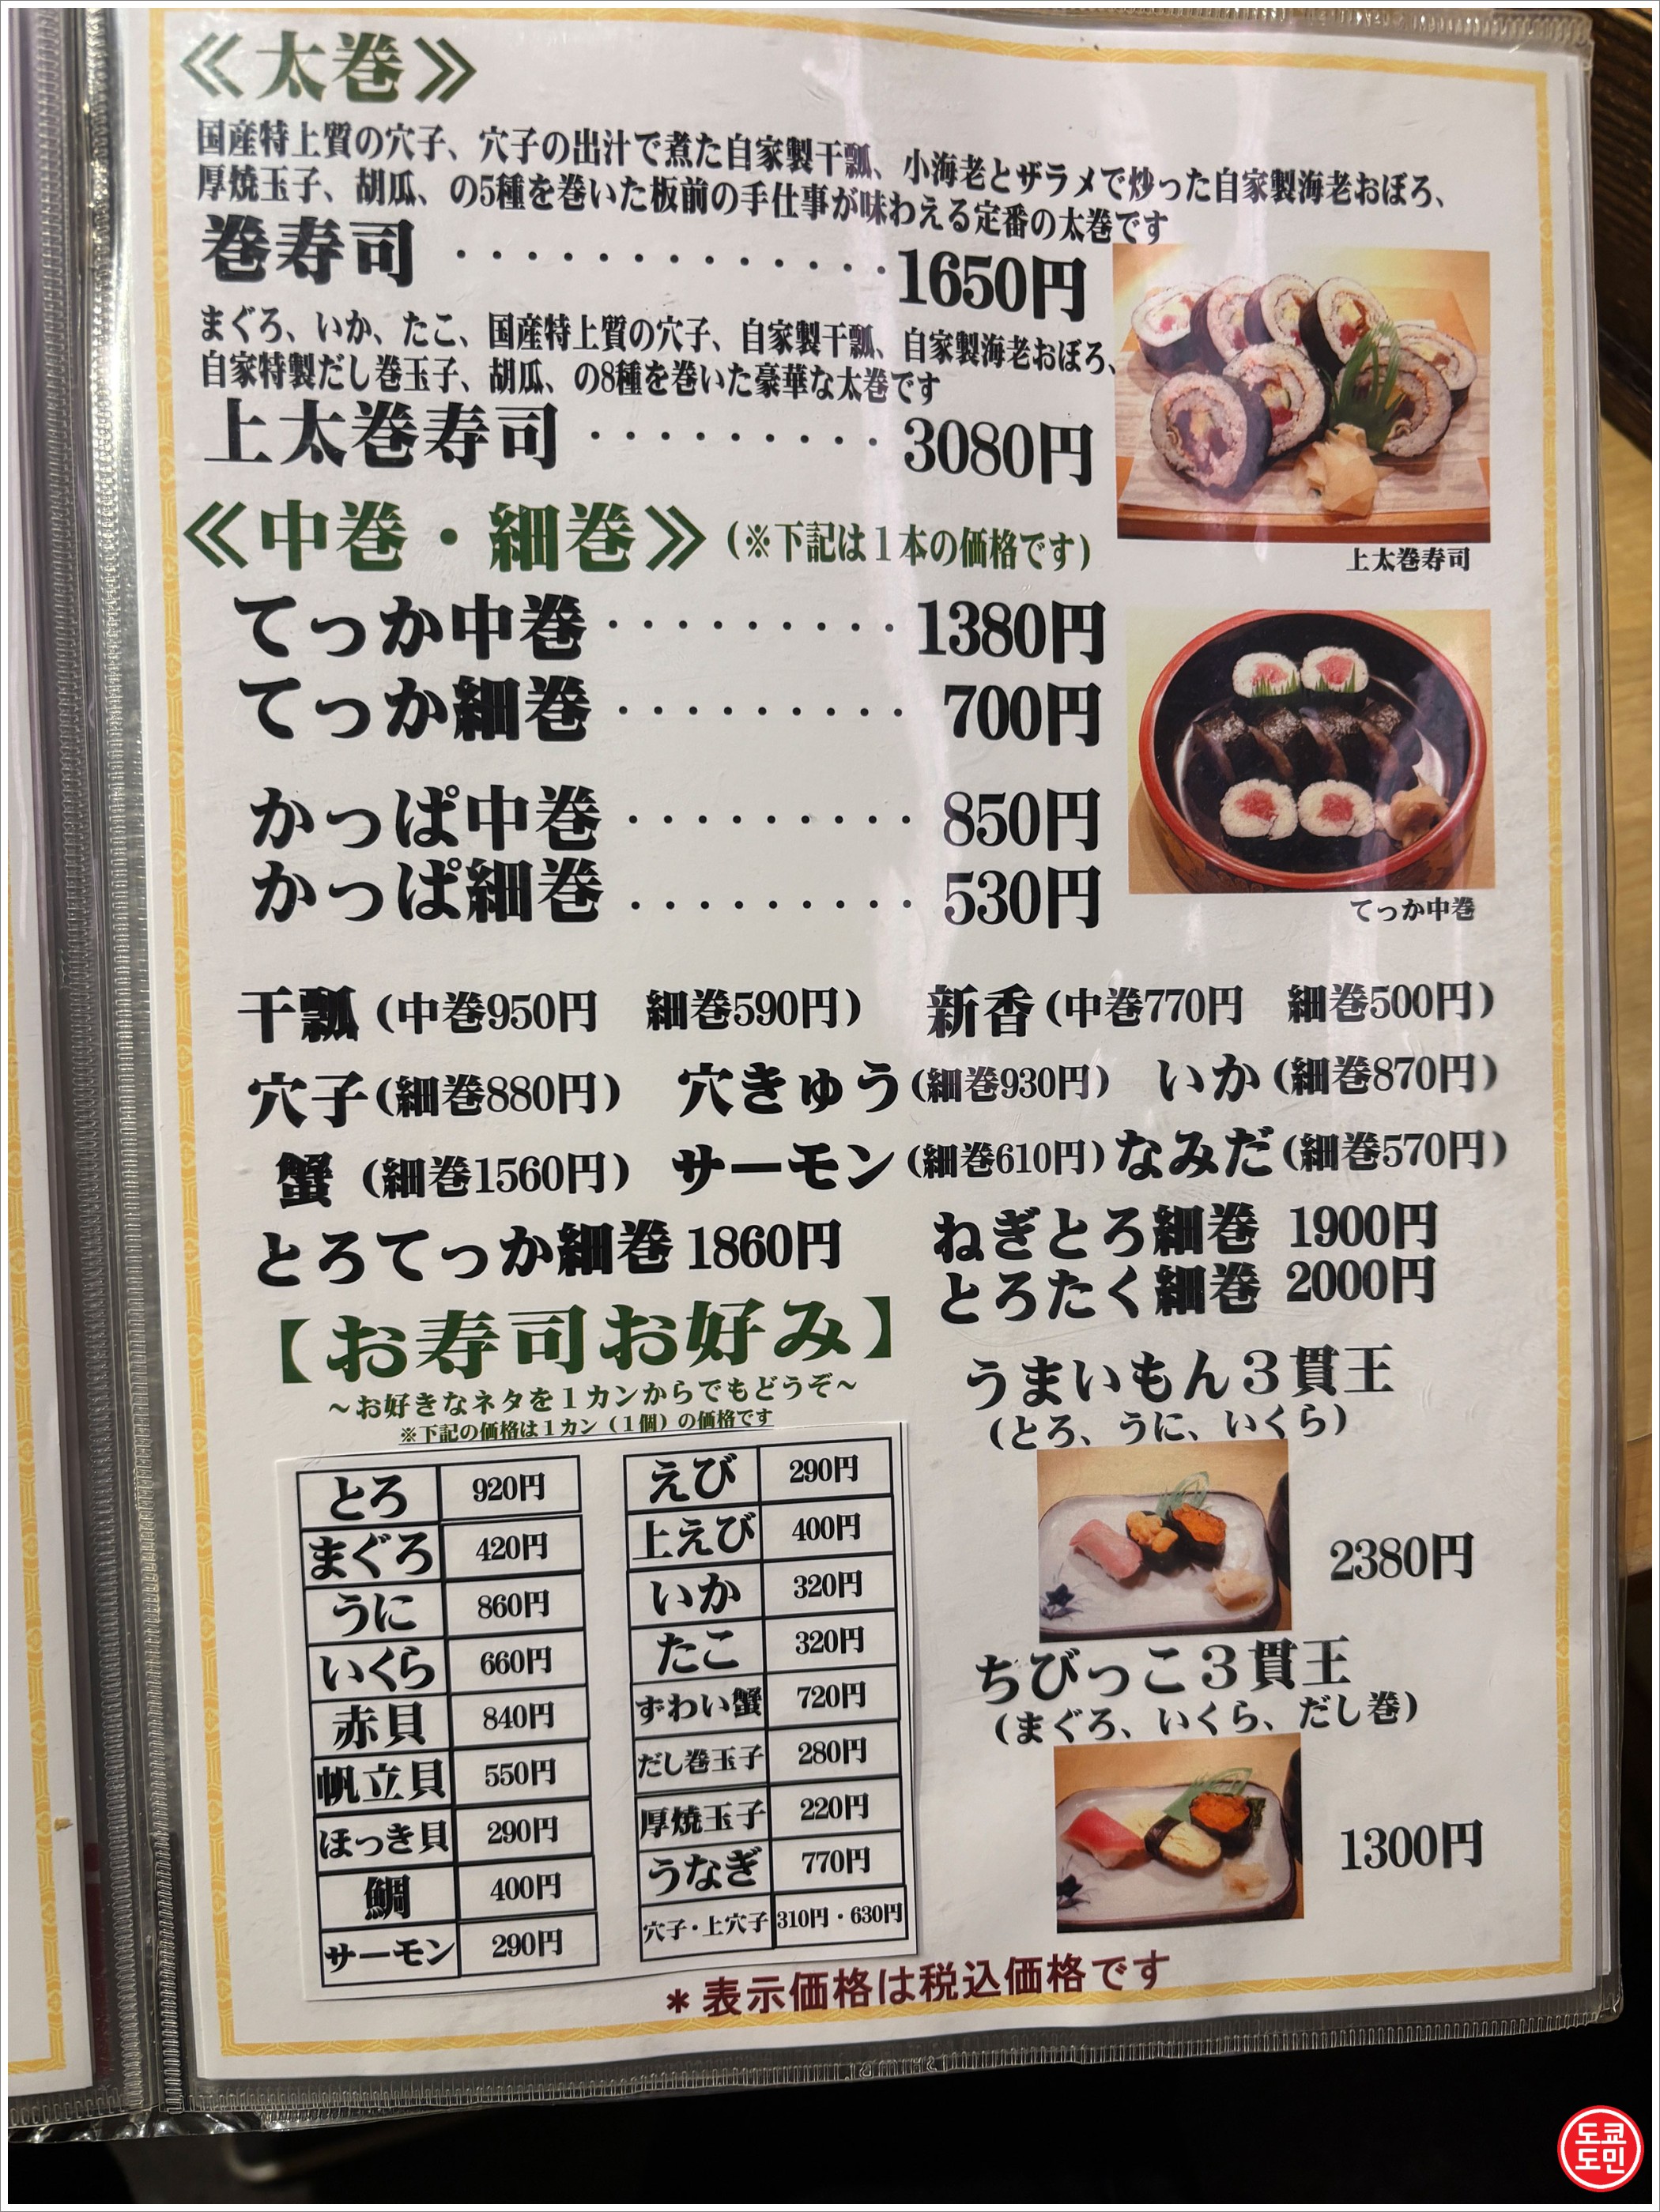 ≪太巻≫
国産特上質の穴子、穴子の出汁で煮た自家製干瓢、小海老とザラメで炒った自家製海老おぼろ、
厚焼玉子、胡瓜、の5種を巻いた板前の手仕事が味わえる定番の太巻です
巻寿司 ・・・・・・・・・・・・・1650円
まぐろ、いか、たこ、国産特上質の穴子、自家製干瓢、自家製海老おぼろ、
自家特製だし巻玉子、胡瓜、の8種を巻いた豪華な太巻です
上太巻寿司 ・・・・・・・・・3080円
上太巻寿司
≪中巻・細巻≫(※下記は1本の価格です)
てっか中巻・・・・・・・・・1380円
てっか細巻・・・・・・・・・700円
かっぱ中巻・・・・・・・・・850円
かっぱ細巻・・・・・・・・・530円
てっか中巻
干瓢(中巻950円 細巻590円) 新香(中巻770円 細巻500円)
穴子(細巻880円) 穴きゅう(細巻930円) いか(細巻870円)
蟹(細巻1560円) サーモン(細巻610円)なみだ(細巻570円)
とろてっか細巻 1860円 ねぎとろ細巻 1900円
とろたく細巻 2000円
【お寿司お好み】
～お好きなネタを1カンからでもどうぞ～
※下記の価格は1カン(1個)の価格です
とろ 920円
まぐろ 420円
うに 860円
いくら 660円
赤貝 840円
帆立貝 550円
ほっき貝 290円
鯛 400円
サーモン 290円
えび 290円
上えび 400円
いか 320円
たこ 320円
ずわい蟹 720円
だし巻玉子 280円
厚焼玉子 220円
うなぎ 770円
穴子・上穴子 310円・630円
うまいもん3貫王
(とろ、うに、いくら)
2380円
ちびっこ3貫王
(まぐろ、いくら、だし巻)
1300円
＊表示価格は税込価格です
도쿄
도민